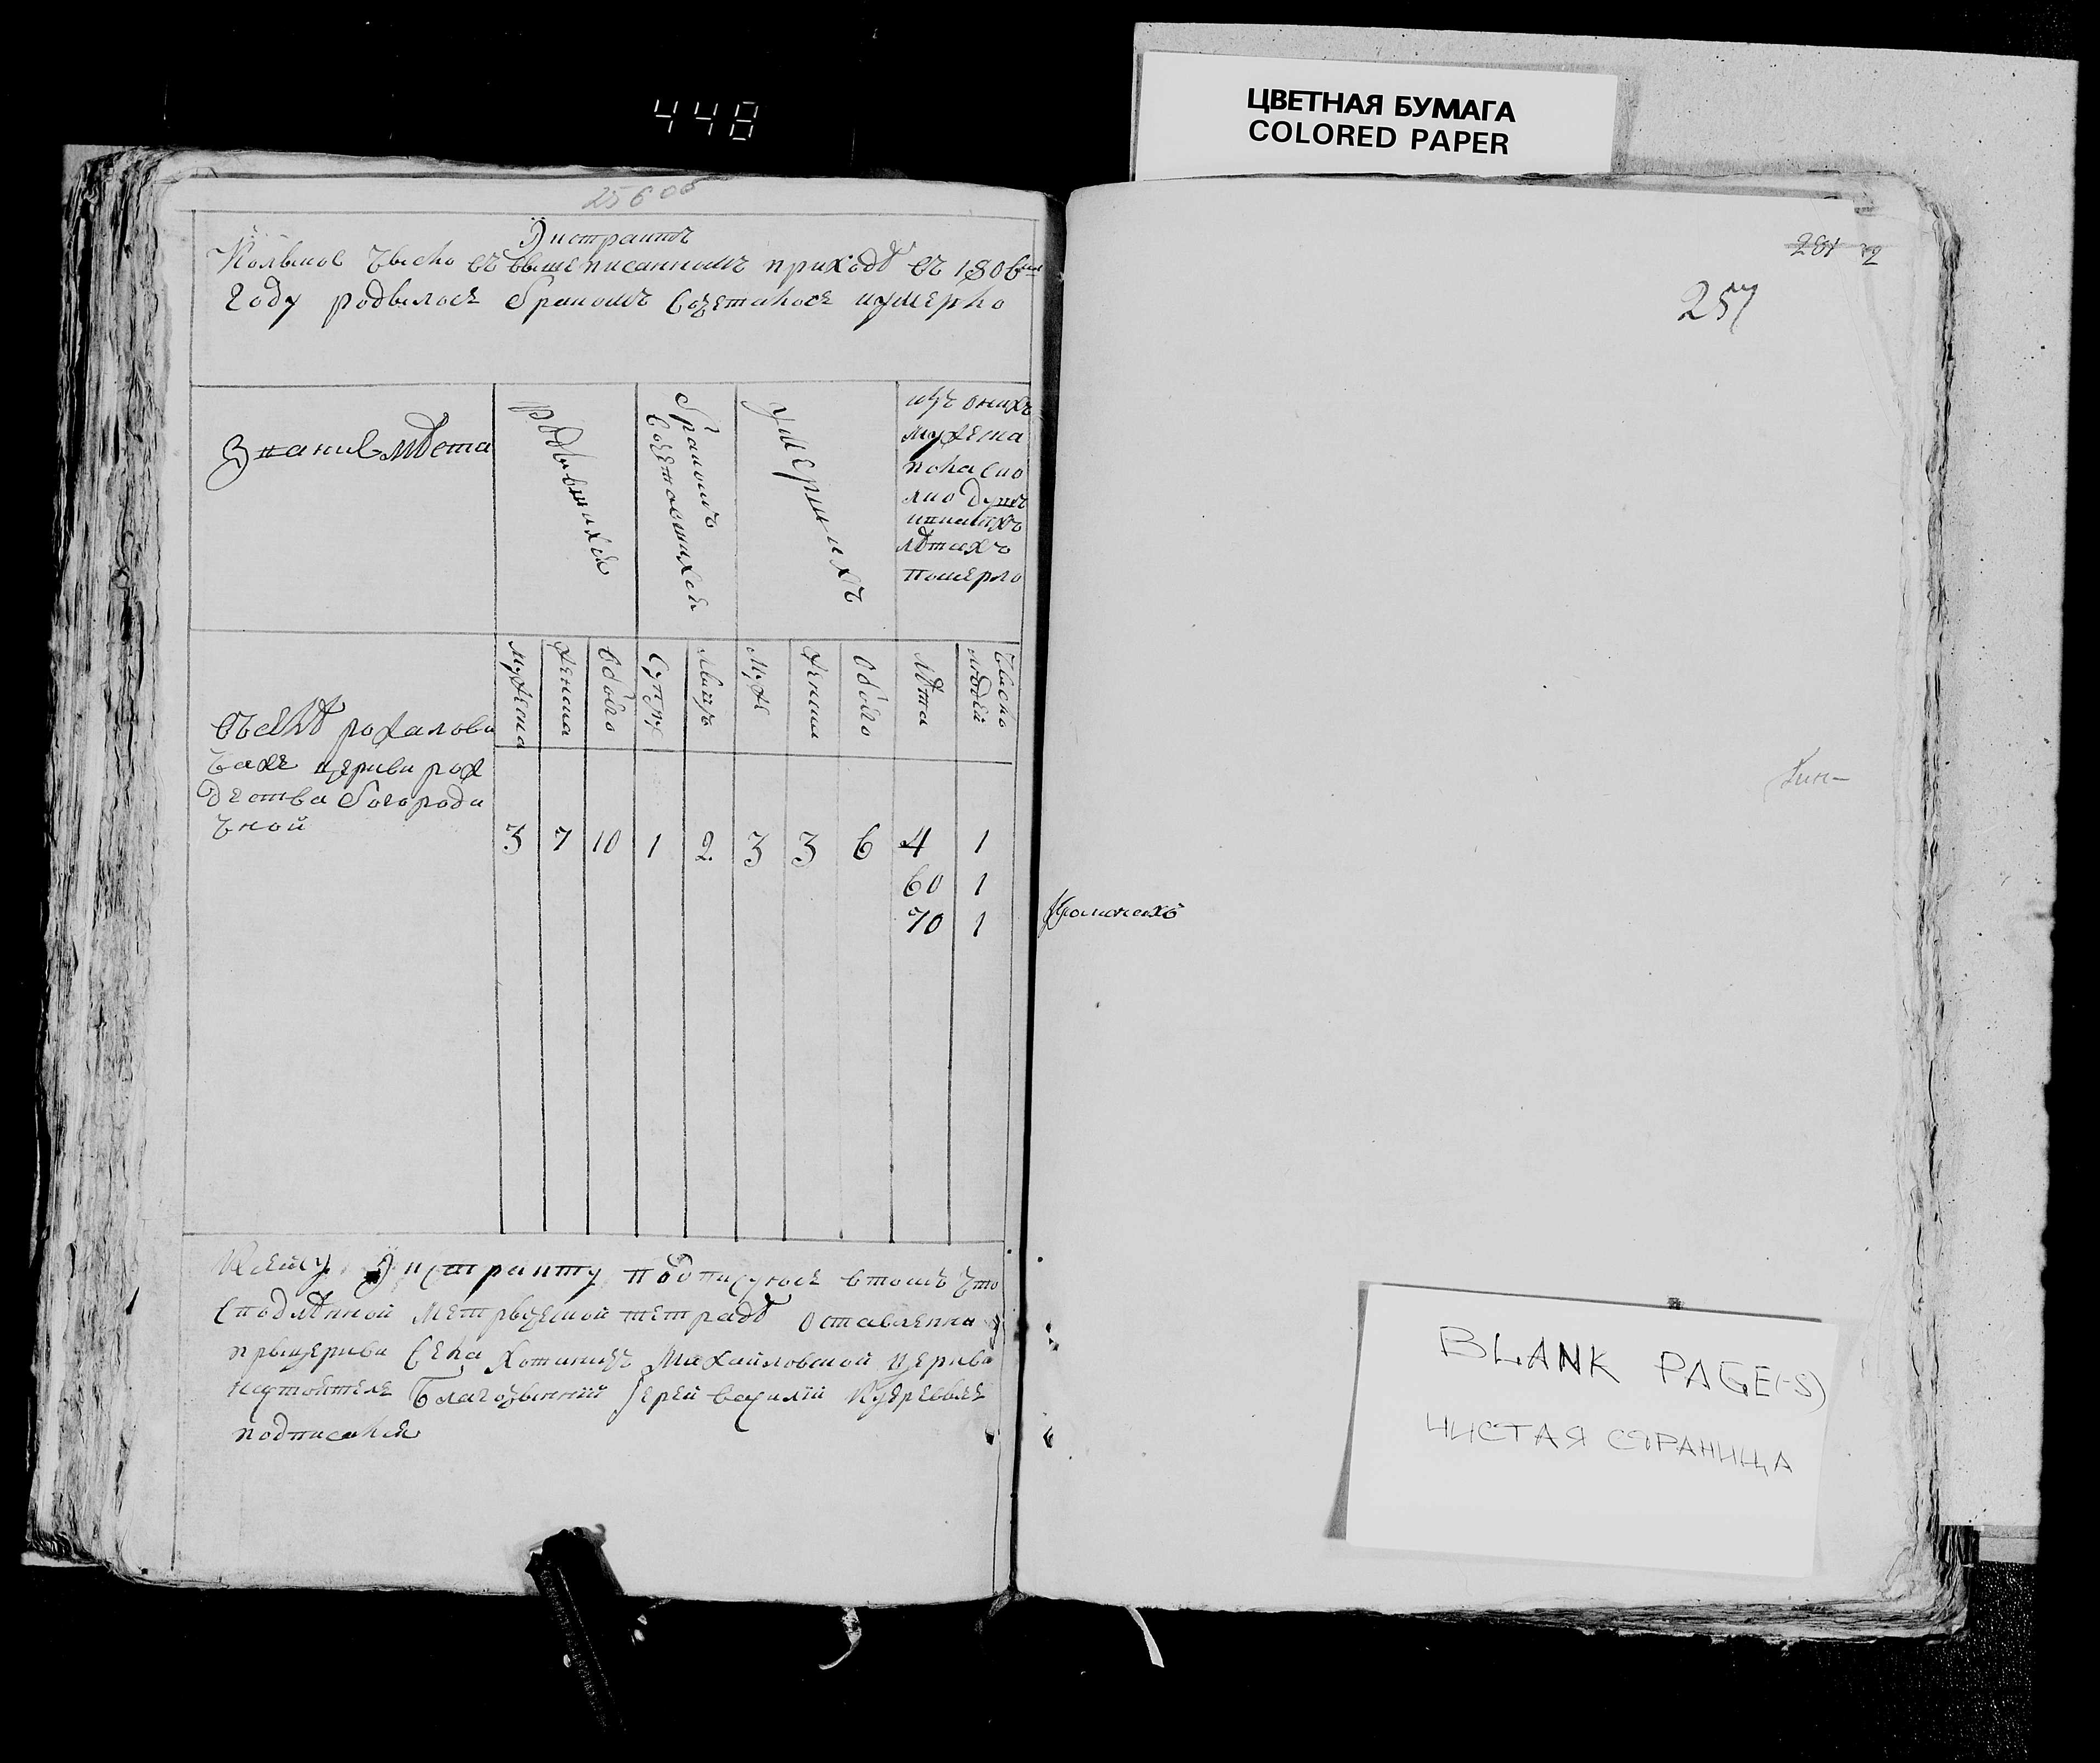 448
ЦВЕТНАЯ БУМАГА
COLORED PAPER
256 об
Экстрактъ
Кольикое чысло въ вышеписанномъ приходѣ въ 1806
году родылось бракомъ сочеталось и умерло
Звание мѣста
родывшихся
бракомъ
сочетавшихся
умершихъ
изъ оных
мужеска
пола
душъ
лѣтахъ
померло
мужеска
женска
обоего
супруж
лицъ
муж
женска
обоего
лѣта
чысло
людей
въ селѣ рожалови
чахъ церкви рож
дества богороди
чной
3 7 10 1 2 3 3 6 4 1
60 1
70 1
К сему Экстракту подписуюсь в томъ что
с подлѣнной метрыческой тетрадѣ оставленна
пры церкви села Михайловской церкви
настоятель Благочынный Iерей василий
подписался
257
BLANK PAGE(-S)
ЧИСТАЯ СТРАНИЦА